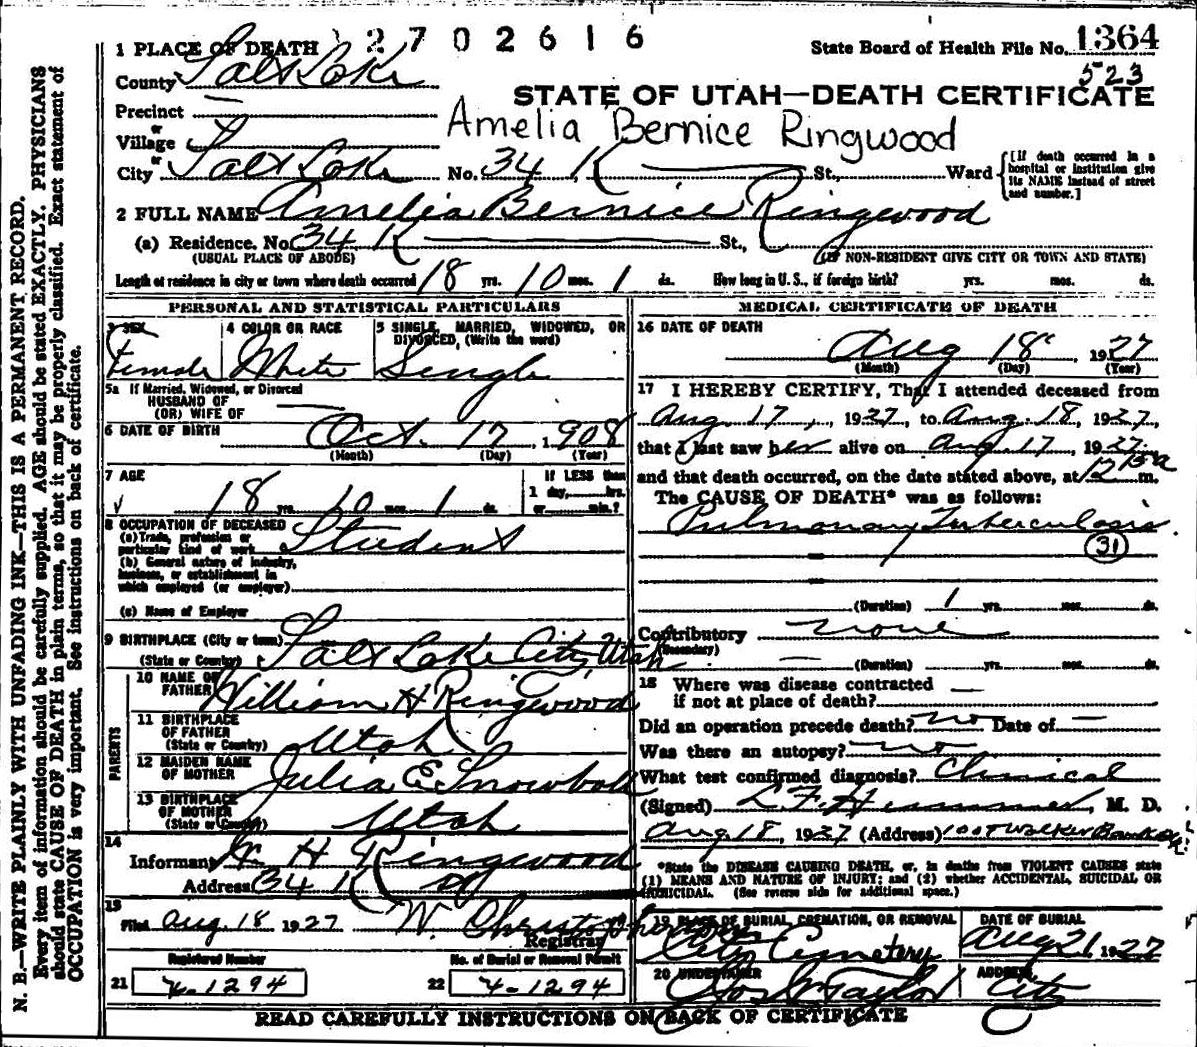 2702616
1 PLACE OF DEATH
State Board of Health File No. 1364
County Salt Lake
523
STATE OF UTAH—DEATH CERTIFICATE
Precinct —
or
Amelia Bernice Ringwood
Village
or
City Salt Lake No. 34 K St., Ward
[If death occurred in a hospital or institution give its NAME instead of street and number.]
2 FULL NAME Amelia Bernice Ringwood
(a) Residence, No. 34 K St.,
(USUAL PLACE OF ABODE) (IF NON-RESIDENT GIVE CITY OR TOWN AND STATE)
Length of residence in city or town where death occurred 18 yrs. 10 mos. 1 ds. How long in U. S., if foreign birth? yrs. mos. ds.
PERSONAL AND STATISTICAL PARTICULARS
3 SEX
Female
4 COLOR OR RACE
White
5 SINGLE, MARRIED, WIDOWED, OR DIVORCED, (Write the word)
Single
5a If Married, Widowed, or Divorced
HUSBAND OF
(OR) WIFE OF —
6 DATE OF BIRTH Oct. 17, 1908
(Month) (Day) (Year)
7 AGE
18 yrs. 10 mos. 1 ds.
If LESS than
1 day, hrs.
or min.?
8 OCCUPATION OF DECEASED
(a) Trade, profession or
particular kind of work Student
(b) General nature of industry,
business, or establishment in
which employed (or employer)
(c) Name of Employer
9 BIRTHPLACE (City or town)
(State or Country) Salt Lake City Utah
PARENTS
10 NAME OF
FATHER William H Ringwood
11 BIRTHPLACE
OF FATHER
(State or Country) Utah
12 MAIDEN NAME
OF MOTHER Julia E Snowball
13 BIRTHPLACE
OF MOTHER
(State or Country) Utah
14
Informant W. H Ringwood
Address 34 K St
15
Filed Aug. 18 1927 W. Christopherson
Registrar
Registered Number
No. of Burial or Removal Permit
21 4-1294 22 4-1294
MEDICAL CERTIFICATE OF DEATH
16 DATE OF DEATH
Aug 18 1927
(Month) (Day) (Year)
17 I HEREBY CERTIFY, That I attended deceased from
Aug 17, 1927, to Aug. 18, 1927,
that I last saw her alive on Aug 17, 1927,
and that death occurred, on the date stated above, at 12 15 a m.
The CAUSE OF DEATH* was as follows:
Pulmonary Tuberculosis
31
(Duration) 1 yrs. mos. ds.
Contributory none
(Secondary)
— (Duration) yrs. mos. ds.
18 Where was disease contracted
if not at place of death? —
Did an operation precede death? no Date of —
Was there an autopsy? no
What test confirmed diagnosis? Clinical
(Signed) L. F. , M. D.
Aug 18, 1927 (Address) 1007 Walker Bank
*State the DISEASE CAUSING DEATH, or, in deaths from VIOLENT CAUSES state
(1) MEANS AND NATURE OF INJURY; and (2) whether ACCIDENTAL, SUICIDAL OR
HOMICIDAL. (See reverse side for additional space.)
19 PLACE OF BURIAL, CREMATION, OR REMOVAL
City Cemetery
DATE OF BURIAL
Aug 21, 1927
20 UNDERTAKER
Jos Wm Taylor
ADDRESS
City
READ CAREFULLY INSTRUCTIONS ON BACK OF CERTIFICATE
N. B.—WRITE PLAINLY WITH UNFADING INK—THIS IS A PERMANENT RECORD.
Every item of information should be carefully supplied. AGE should be stated EXACTLY. PHYSICIANS
should state CAUSE OF DEATH in plain terms, so that it may be properly classified. Exact statement of
OCCUPATION is very important. See instructions on back of certificate.